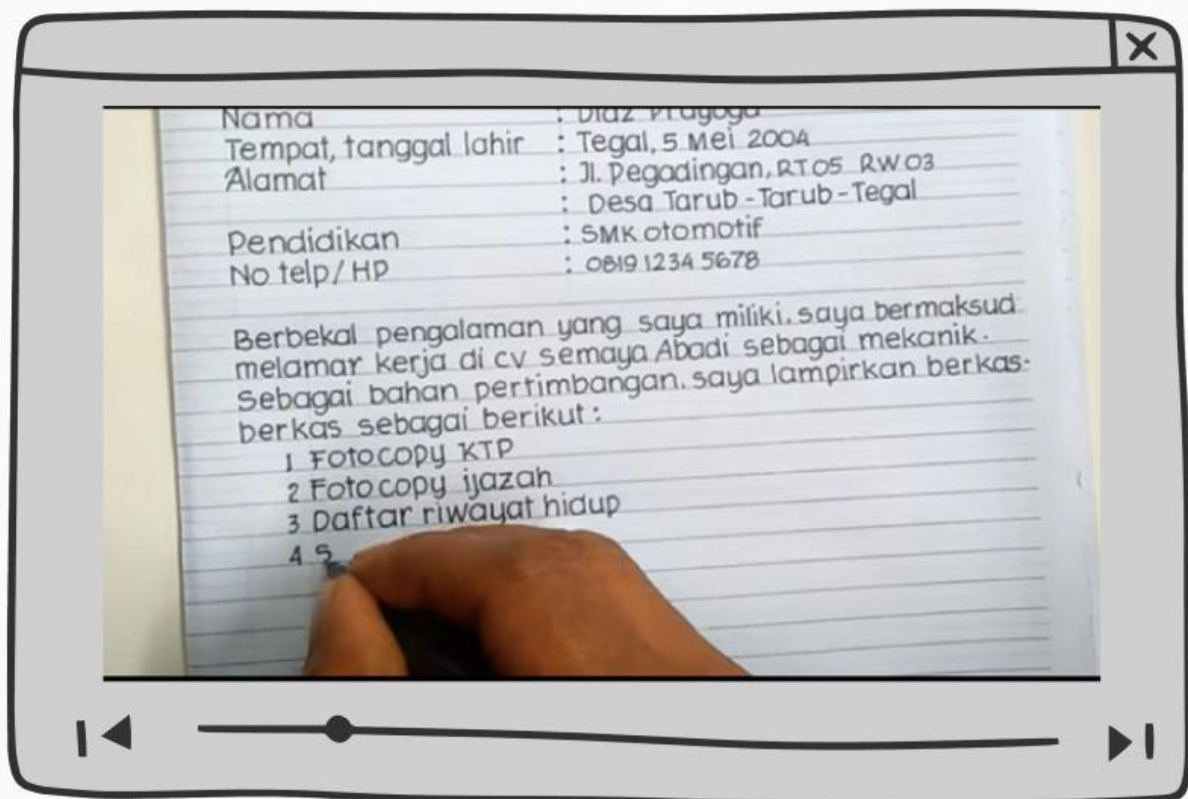 Nama : Diaz Prayoga
Tempat, tanggal lahir : Tegal, 5 Mei 2004
Alamat : Jl. Pegadingan, RT 05 RW 03
: Desa Tarub - Tarub - Tegal
Pendidikan : SMK otomotif
No telp/HP : 0819 1234 5678
Berbekal pengalaman yang saya miliki. saya bermaksud
melamar kerja di cv semaya Abadi sebagai mekanik.
Sebagai bahan pertimbangan. saya lampirkan berkas-
berkas sebagai berikut :
1 Fotocopy KTP
2 Fotocopy ijazah
3 Daftar riwayat hidup
4 S